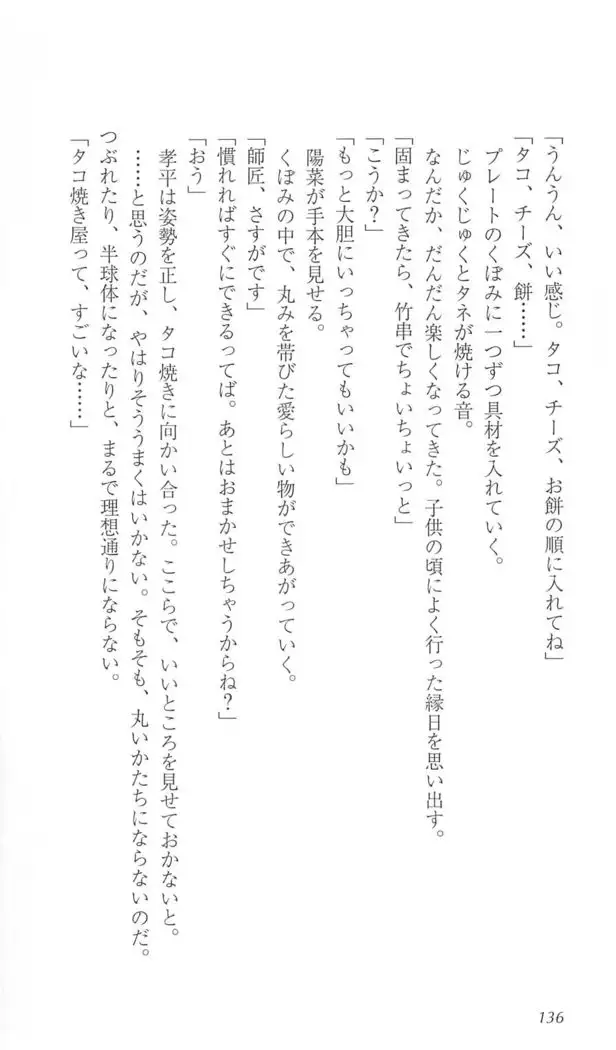 「うんうん、いい感じ。タコ、チーズ、お餅の順に入れてね」
「タコ、チーズ、餅……」
プレートのくぼみに一つずつ具材を入れていく。
じゅくじゅくとタネが焼ける音。
なんだか、だんだん楽しくなってきた。子供の頃によく行った縁日を思い出す。
「固まってきたら、竹串でちょいちょいっと」
「こうか？」
「もっと大胆にいっちゃってもいいかも」
陽菜が手本を見せる。
くぼみの中で、丸みを帯びた愛らしい物ができあがっていく。
「師匠、さすがです」
「慣れればすぐにできるってば。あとはおまかせしちゃうからね？」
「おう」
孝平は姿勢を正し、タコ焼きに向かい合った。ここらで、いいところを見せておかないと。
……と思うのだが、やはりそううまくはいかない。そもそも、丸いかたちにならないのだ。
つぶれたり、半球体になったりと、まるで理想通りにならない。
「タコ焼き屋って、すごいな……」
136